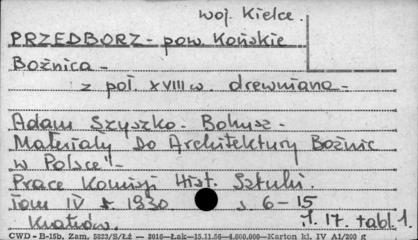 woj. Kielce.
PRZEDBORZ - pow. Końskie
Bożnica -
z poł. XVIII w. drewniana -
Adam Szyszko - Bohusz -
Materiały Do Architektury Bożnic
w Polsce" -
Prace Komisji Hist. Sztuki.
Tom IV r. 1930 s. 6-15
Kraków. il. 17. tabl. 1
CWD - B-15b. Zam. 5823/S/Łź — 2016-Łak-15.11.56-4.000.000-Karton kl. IV A1/200 g